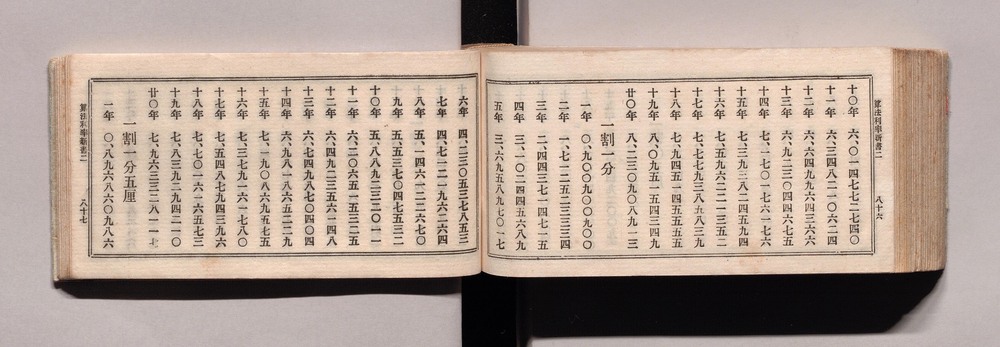 十〇年 六、〇一四七七二七四〇
十一年 六、三四八二一〇六二四
十二年 六、六四九九六四三六六
十三年 六、九二三〇四四六七五
十四年 七、一七〇一七六一七六
十五年 七、三九三八二四五九四
十六年 七、五九六二二一三五二
十七年 七、七七九三八五八三九
十八年 七、九四五一四五五五五
十九年 八、〇九五一五四三四九
廿〇年 八、二三〇九〇八九一三
一割一分
一年 〇、九〇〇九〇〇九〇〇
二年 一、七一二五二三三三四
三年 二、四四三七一四七一五
四年 三、一〇二四四五六八九
五年 三、六九五八九七〇一七
算法利率新書二 八十六
六年 四、二三〇五三七八五三
七年 四、七一二一九六二六四
八年 五、一四六一二二七六〇
九年 五、五三七〇四七五三二
十〇年 五、八八九二三二〇一一
十一年 六、二〇六五一五三二五
十二年 六、四九二三五六一四八
十三年 六、七四九八七〇四〇四
十四年 六、九八一八六五二二九
十五年 七、一九〇八六九五七五
十六年 七、三七九一六一七八〇
十七年 七、五四八七九四三九六
十八年 七、七〇一六一六五七三
十九年 七、八三九二九四二一〇
廿〇年 七、九六三三二八一一七
一割一分五厘
一年 〇、八九六八六〇九八六
算法利率新書二 八十七